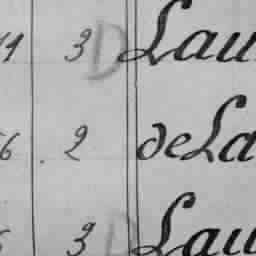 3 D Lau
6 2 deLa
3 D Lau